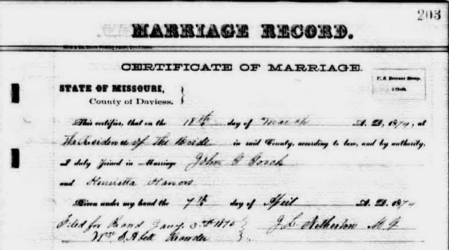 203
MARRIAGE RECORD.
CERTIFICATE OF MARRIAGE.
STATE OF MISSOURI,
County of Daviess.
This certifies, that on the 18th day of March A. D. 1874, at
The Residence of The Bride in said County, according to law, and by authority,
I duly Joined in Marriage John
and Henrietta
Given under my hand the 7th day of April A. D. 1874
Filed for Record Jany 3rd 1875 J. L. Netherton M. G.
Recorder